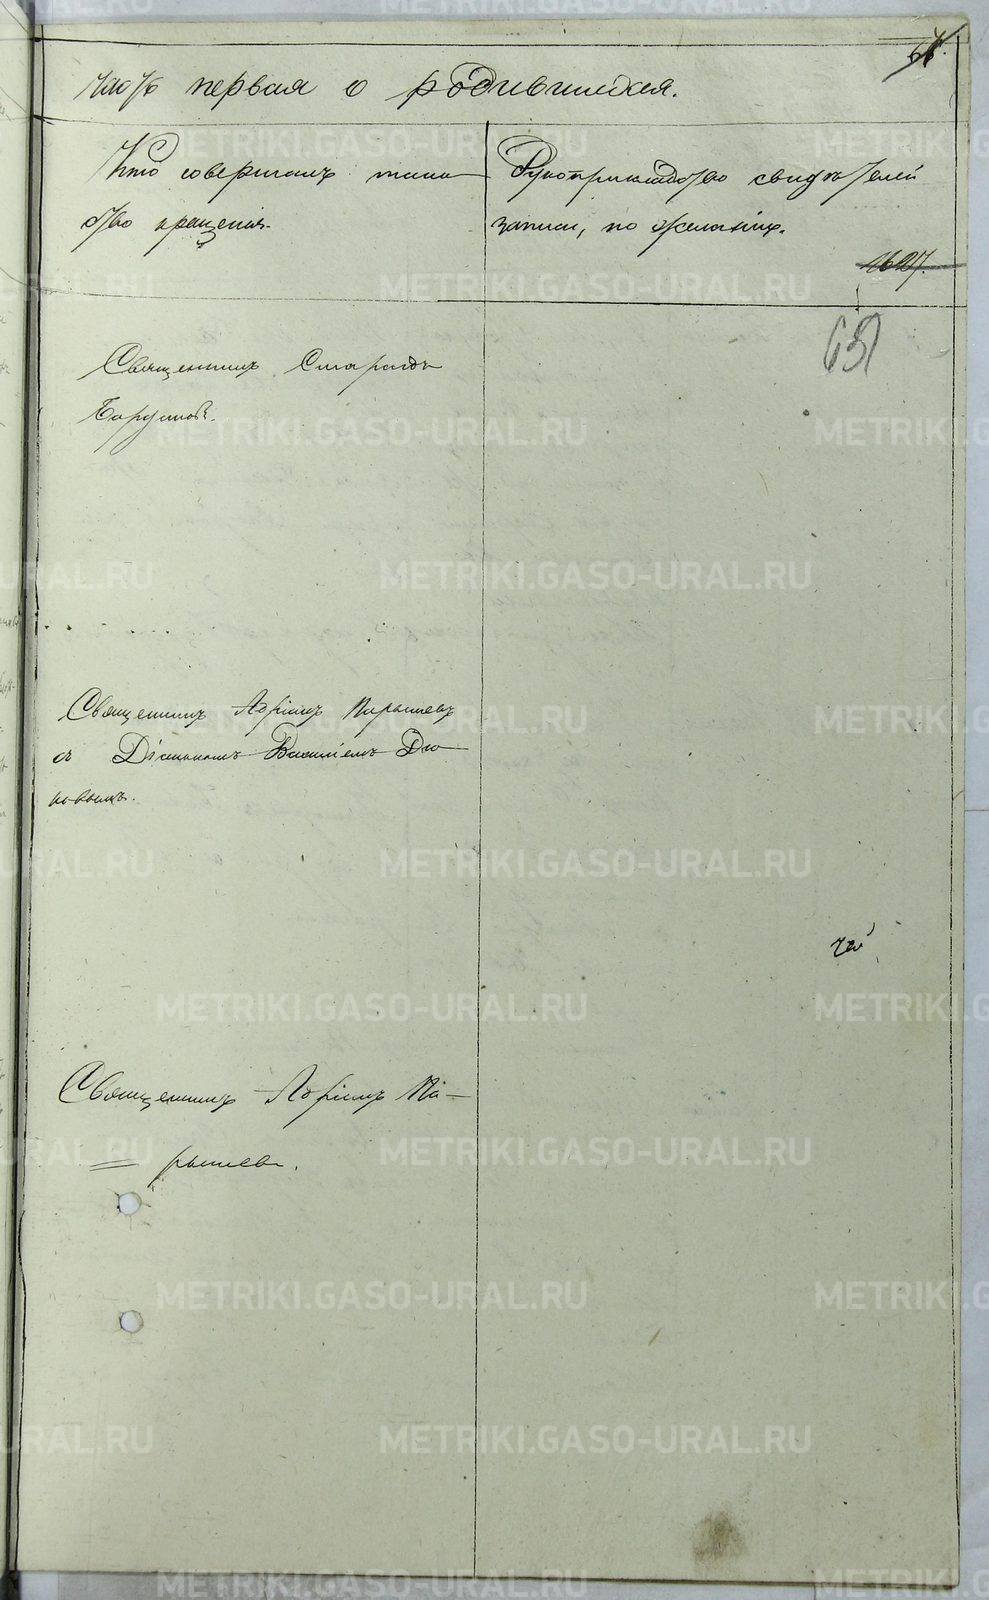 часть первая о родившихся.
Кто совершалъ таин
ство крещенія.
Рукоприкладство свидѣтелей
записи, по желанію.
1627.
65
Священникъ Смарагдъ
Священникъ Адріанъ Парышевъ
съ Діакономъ Василіемъ Дю
ковымъ.
Священникъ Адріанъ Па-
рышевъ.
METRIKI.GASO-URAL.RU